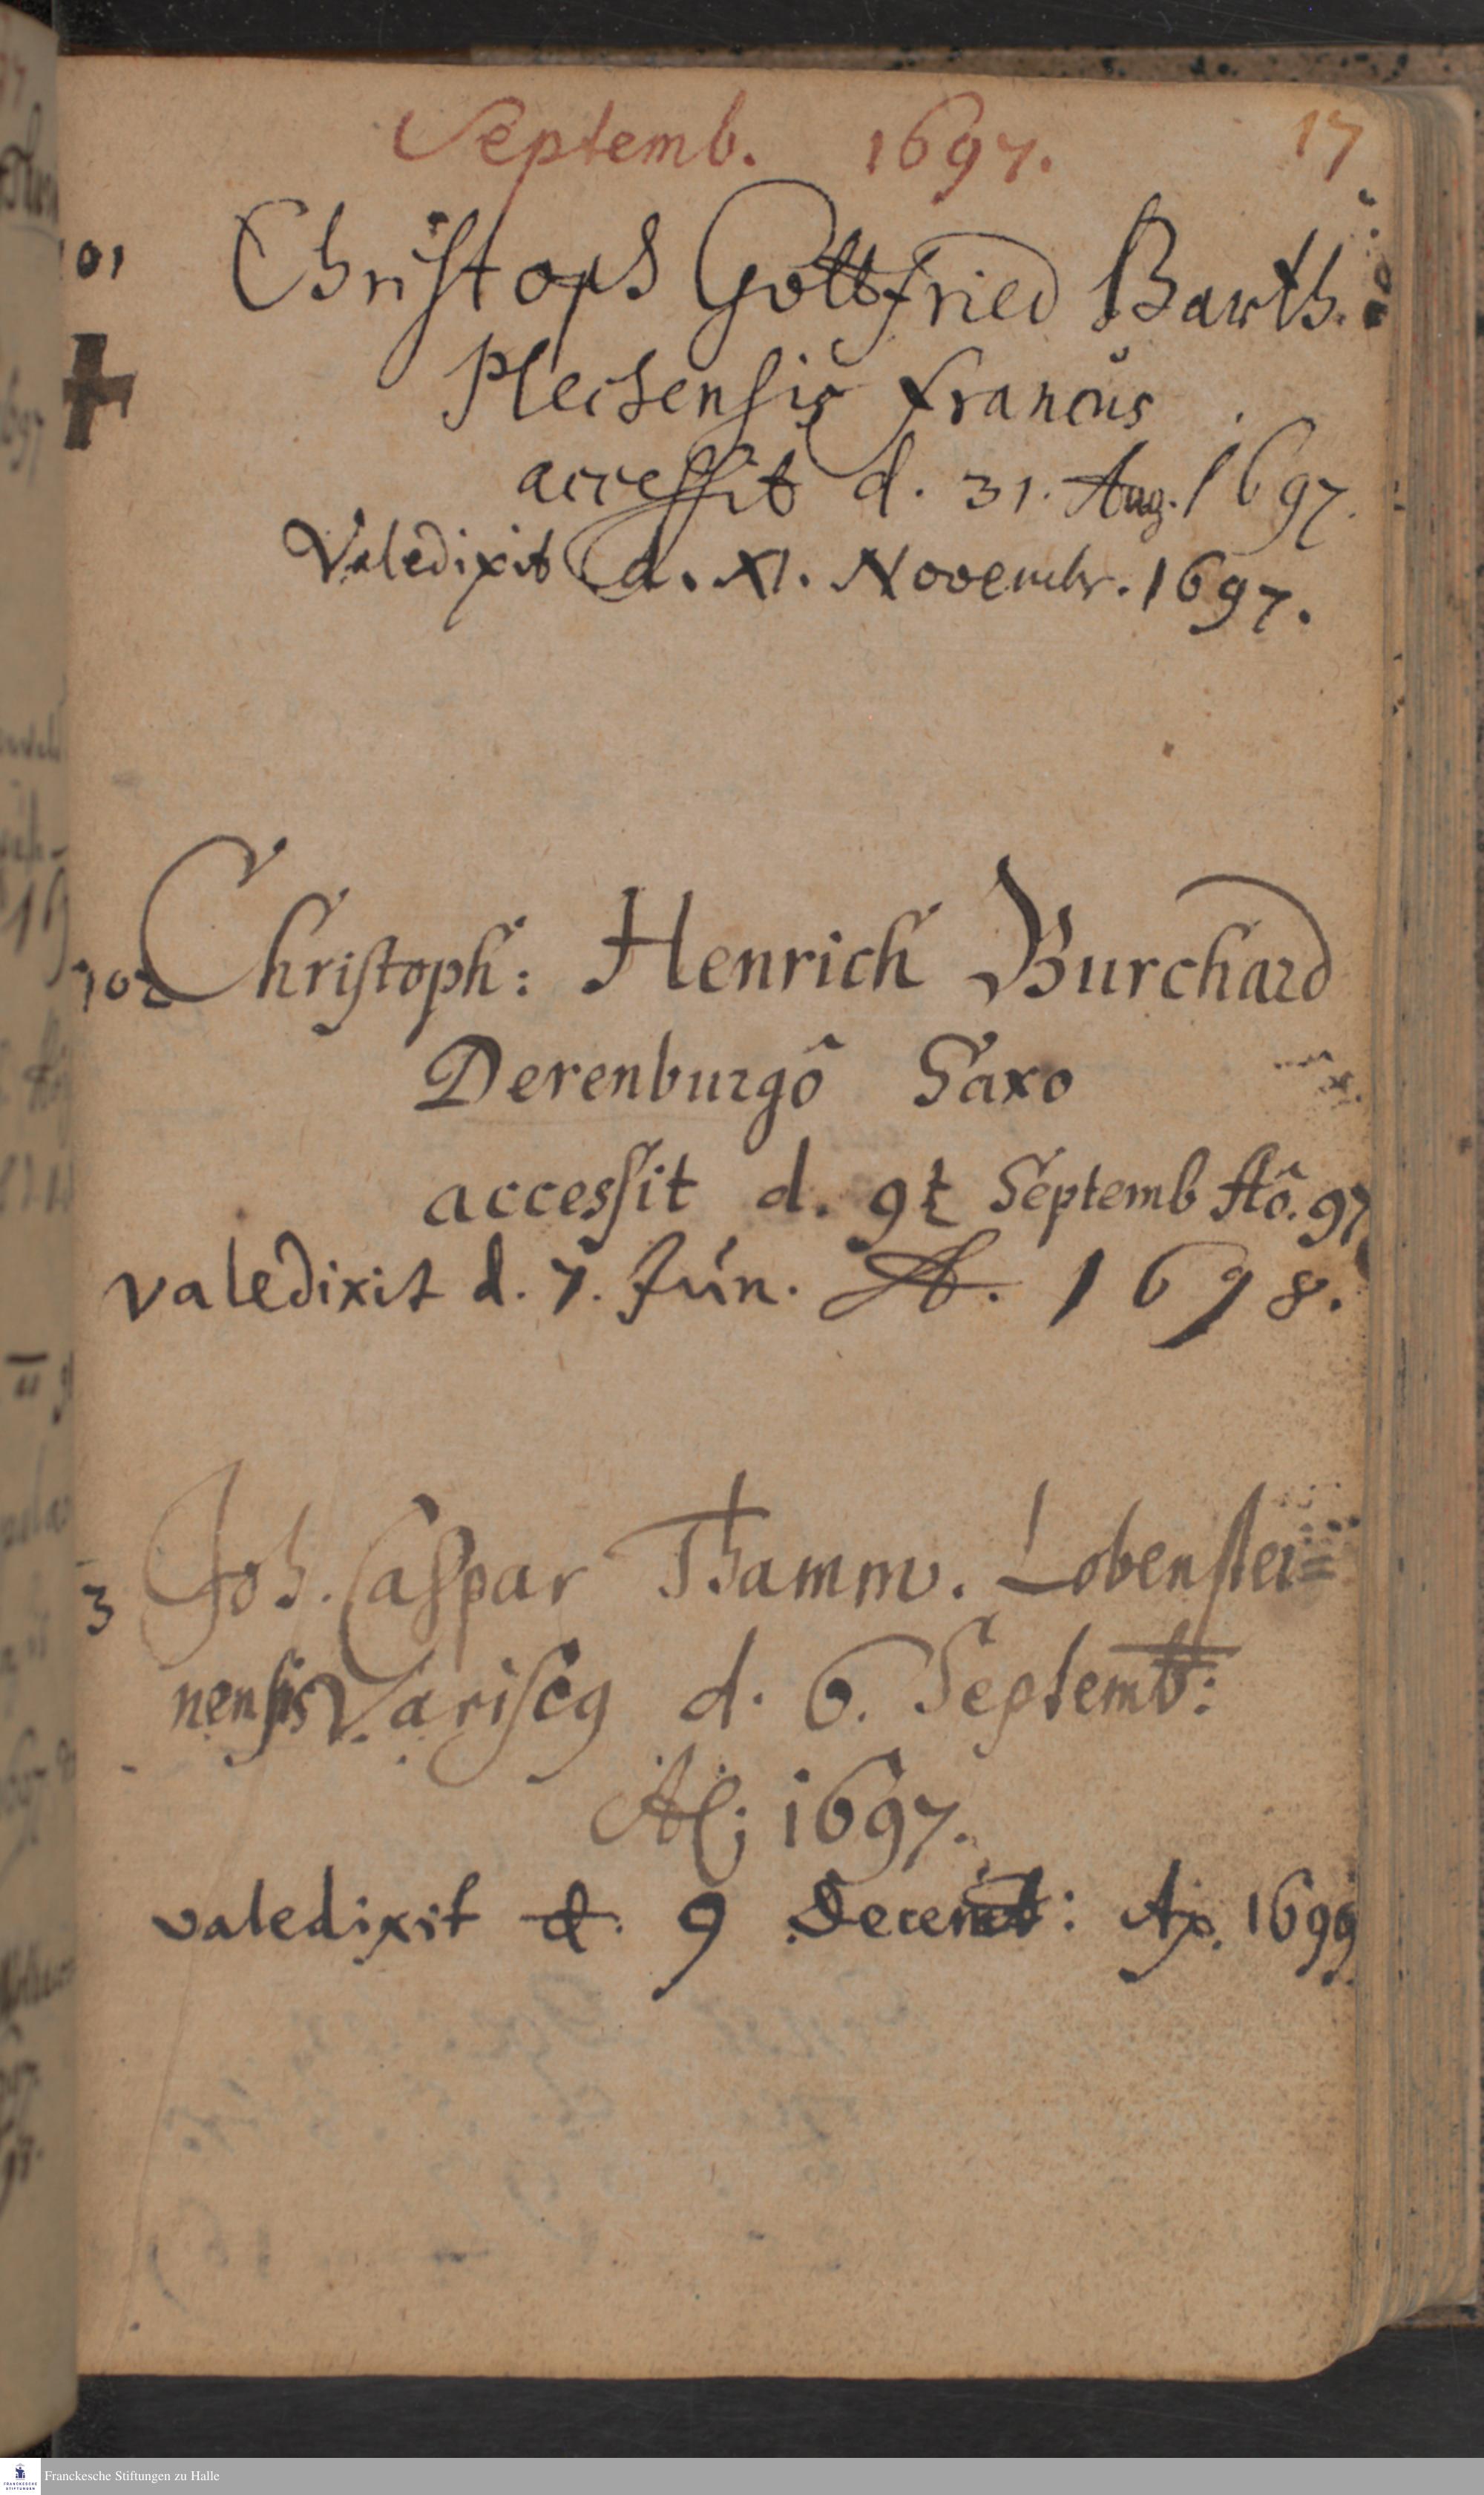 Septemb. 1697. 17
101 Christoph Gottfried Barth.
Plechensis Francus
accessit d. 31. Aug. 1697.
Valedixit d. XI. Novembr. 1697.
102 Christoph: Henrich Burchard
Derenburgô Saxo
accessit d. 9t Septemb Aô. 97
valedixit d. 7. Jun. A. 1698.
3 Joh. Caspar Thamm. Lobenstei=
nensis Variscg d. 6. Septemb:
1697.
valedixit d. 9 Decemb: Ao. 1699
Franckesche Stiftungen zu Halle